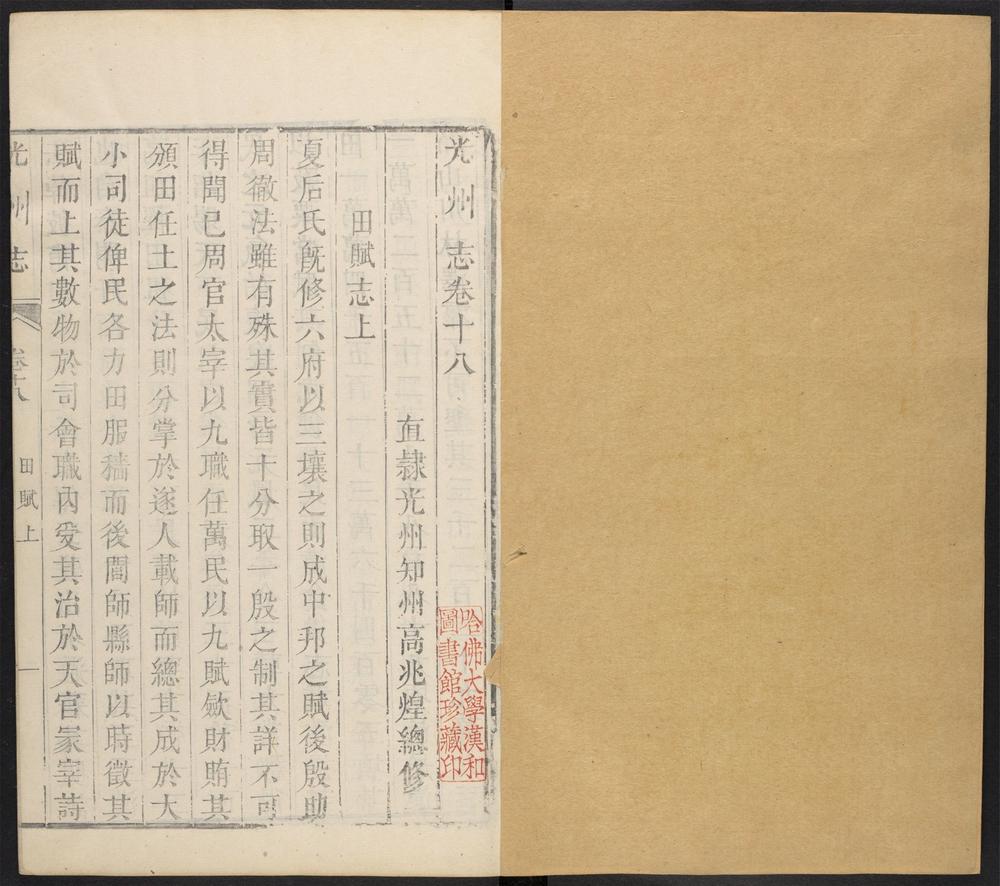 光州志卷十八
哈佛大學漢和
圖書館珍藏印
直隸光州知州高兆煌總修
田賦志上
夏后氏旣修六府以三壤之則成中邦之賦後殷助
周徹法雖有殊其實皆十分取一殷之制其詳不可
得聞已周官太宰以九職任萬民以九賦斂財賄其
頒田任土之法則分掌於遂人載師而總其成於大
小司徒俾民各力田服穡而後閭師縣師以時徵其
賦而上其數物於司會職內受其治於天官冢宰詩
光州志
卷十八
田賦上
一